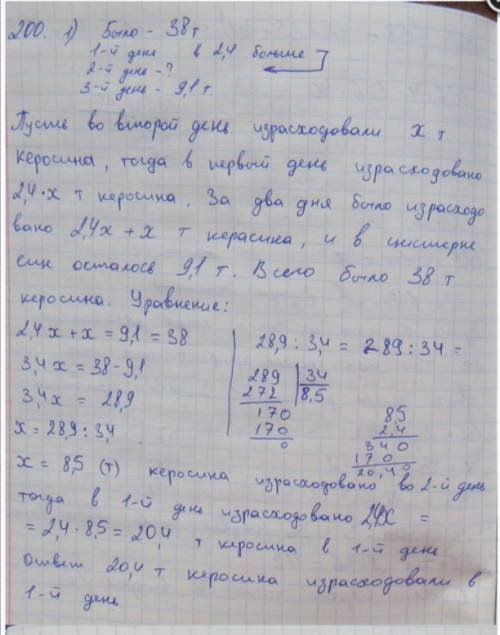 200. 1) Было - 38 т
1-й день в 2,4 больше
2-й день - ?
3-й день - 9,1 т.
Пусть во второй день израсходовали x т
керосина, тогда в первый день израсходовано
2,4·x т керосина. За два дня было израсходо
вано 2,4x + x т керасина, и в цистерне
осталось 9,1 т. Всего было 38 т
керосина. Уравнение:
2,4x + x = 9,1 = 38
3,4x = 38 - 9,1
3,4x = 28,9
x = 28,9 : 3,4
28,9 : 3,4 = 289 : 34 =
289 34
272 8,5
170
170
0
8,5
2,4
340
170
20,40
x = 8,5 (т) керосина израсходовано во 2-й день
тогда в 1-й день израсходовано 2,4x =
= 2,4 · 8,5 = 20,4 т керосина в 1-й день
Ответ 20,4 т керосина израсходовали в
1-й день